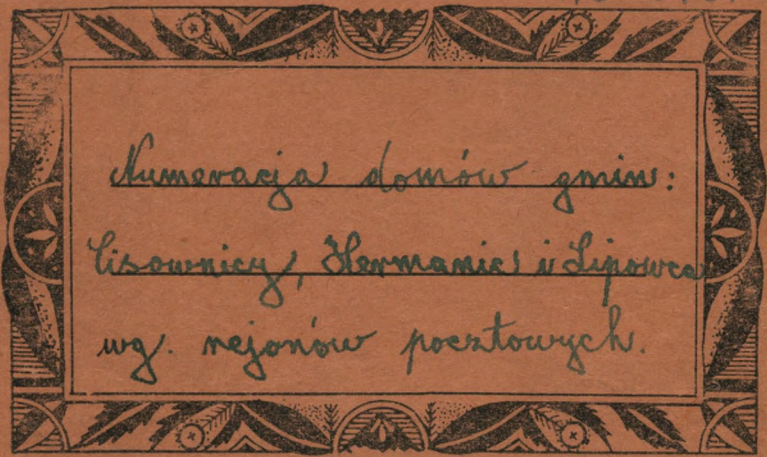 Numeracja domów gmin:
Cisownicy, Hermanic i Lipowca
wg. rejonów pocztowych.